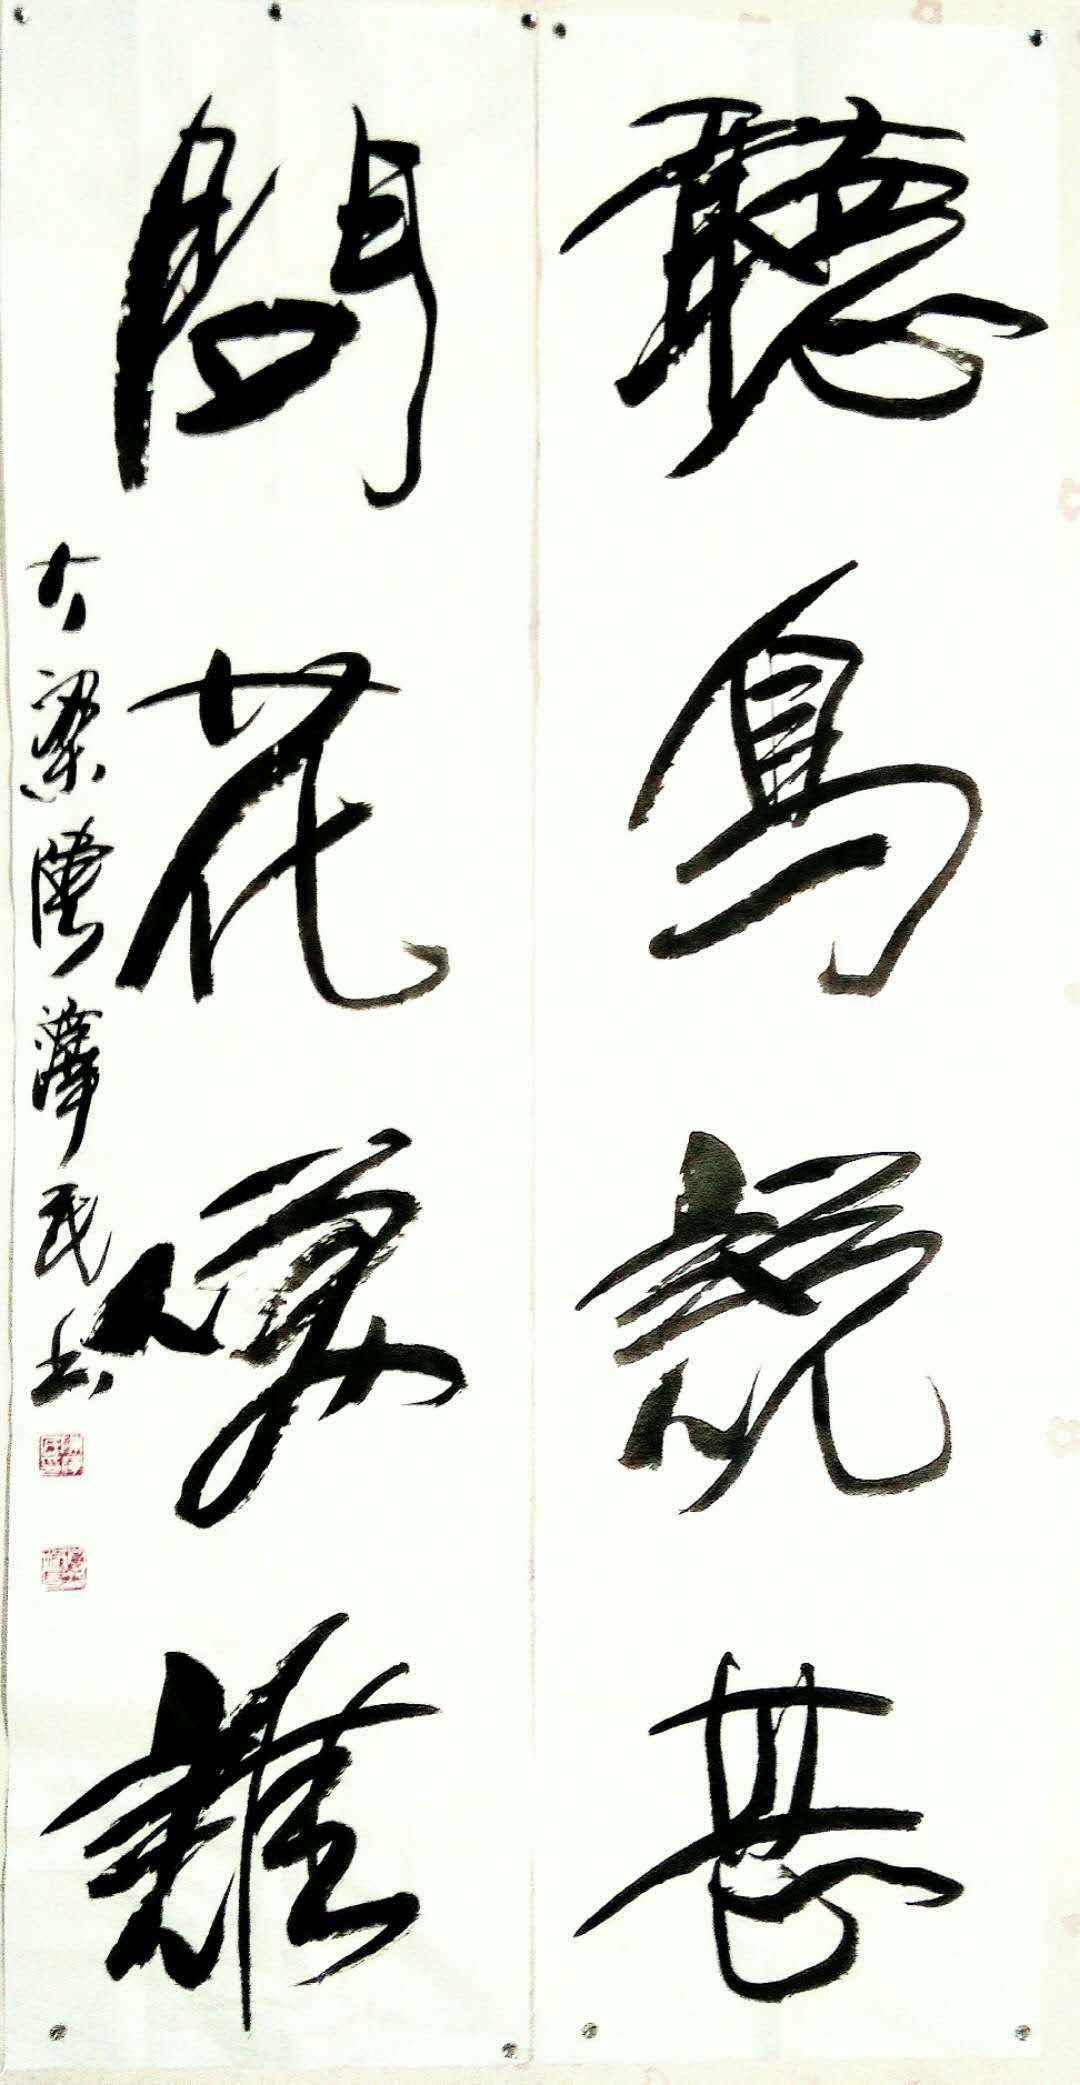 聽鳥說甚
問花笑誰
大梁陳澤民書